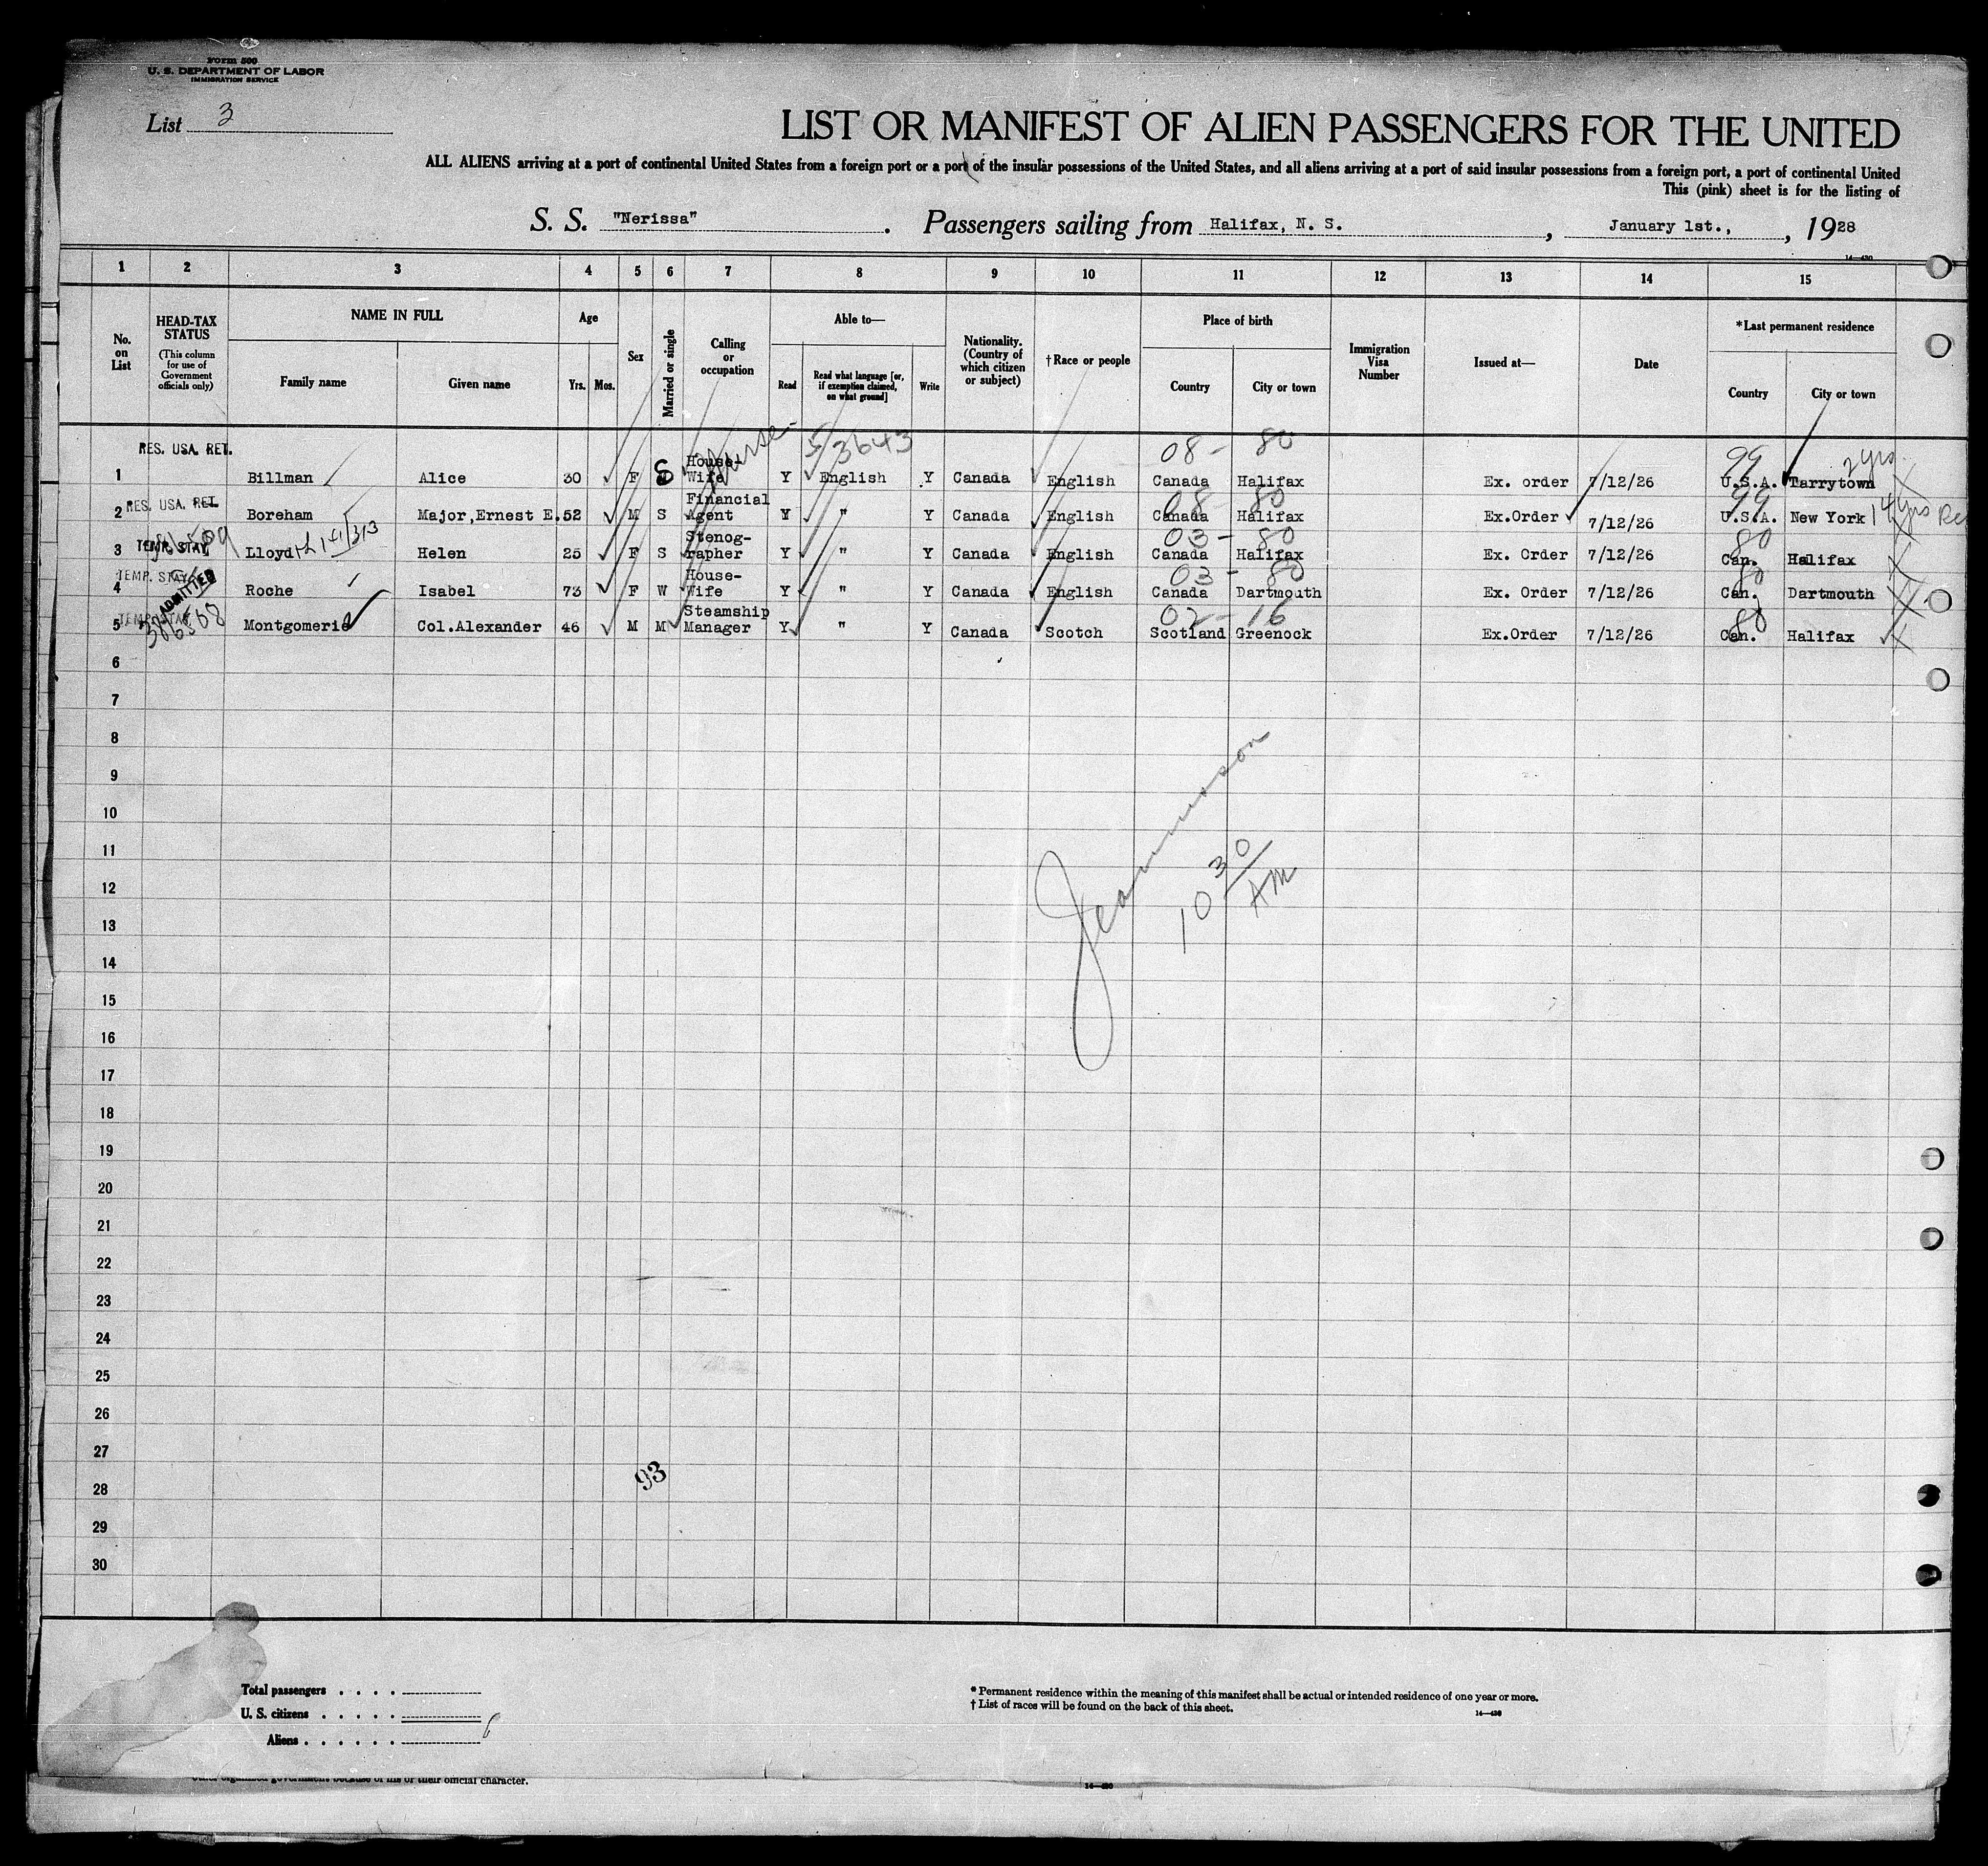 Form 500
U. S. DEPARTMENT OF LABOR
IMMIGRATION SERVICE
List 3
LIST OR MANIFEST OF ALIEN PASSENGERS FOR THE UNITED
ALL ALIENS arriving at a port of continental United States from a foreign port or a port of the insular possessions of the United States, and all aliens arriving at a port of said insular possessions from a foreign port, a port of continental United
This (pink) sheet is for the listing of
S. S. "Nerissa". Passengers sailing from Halifax, N. S., January 1st., , 1928
14—430
1 2 3 4 5 6 7 8 9 10 11 12 13 14 15
No. on List
HEAD-TAX STATUS (This column for use of Government officials only)
NAME IN FULL
Family name Given name
Age
Yrs. Mos.
Sex
Married or single
Calling or occupation
Able to—
Read Read what language [or, if exemption claimed, on what ground] Write
Nationality. (Country of which citizen or subject)
†Race or people
Place of birth
Country City or town
Immigration Visa Number
Issued at—
Date
*Last permanent residence
Country City or town
RES. USA. RET. Nurse 53643 08- 80 99 2 yrs.
1 Billman Alice 30 F S House-Wife Y English Y Canada English Canada Halifax Ex. order 7/12/26 U.S.A. Tarrytown
RES. USA. RET. 08 80 99
2 Boreham Major,Ernest E. 52 M S Financial Agent Y " Y Canada English Canada Halifax Ex.Order 7/12/26 U.S.A. New York 14 yrs
TEMP. STAY 03 - 80 80
3 Lloyd Helen 25 F S Stenog-rapher Y " Y Canada English Canada Halifax Ex. Order 7/12/26 Can. Halifax
TEMP. STAY 03 - 80 80
4 ADMITTED Roche Isabel 73 F W House-Wife Y " Y Canada English Canada Dartmouth Ex. Order 7/12/26 Can. Dartmouth
TEMP. STAY 386508 02 - 16 80
5 Montgomerie Col.Alexander 46 M M Steamship Manager Y " Y Canada Scotch Scotland Greenock Ex.Order 7/12/26 Can. Halifax
6
7
8
9
10
11
10 30 AM
12
13
14
15
16
17
18
19
20
21
22
23
24
25
26
27
93
28
29
30
Total passengers . . . .
U. S. citizens . . . . .
Aliens . . . . . .
* Permanent residence within the meaning of this manifest shall be actual or intended residence of one year or more.
† List of races will be found on the back of this sheet.
14—430
other organized government because of his or their official character.
14—430